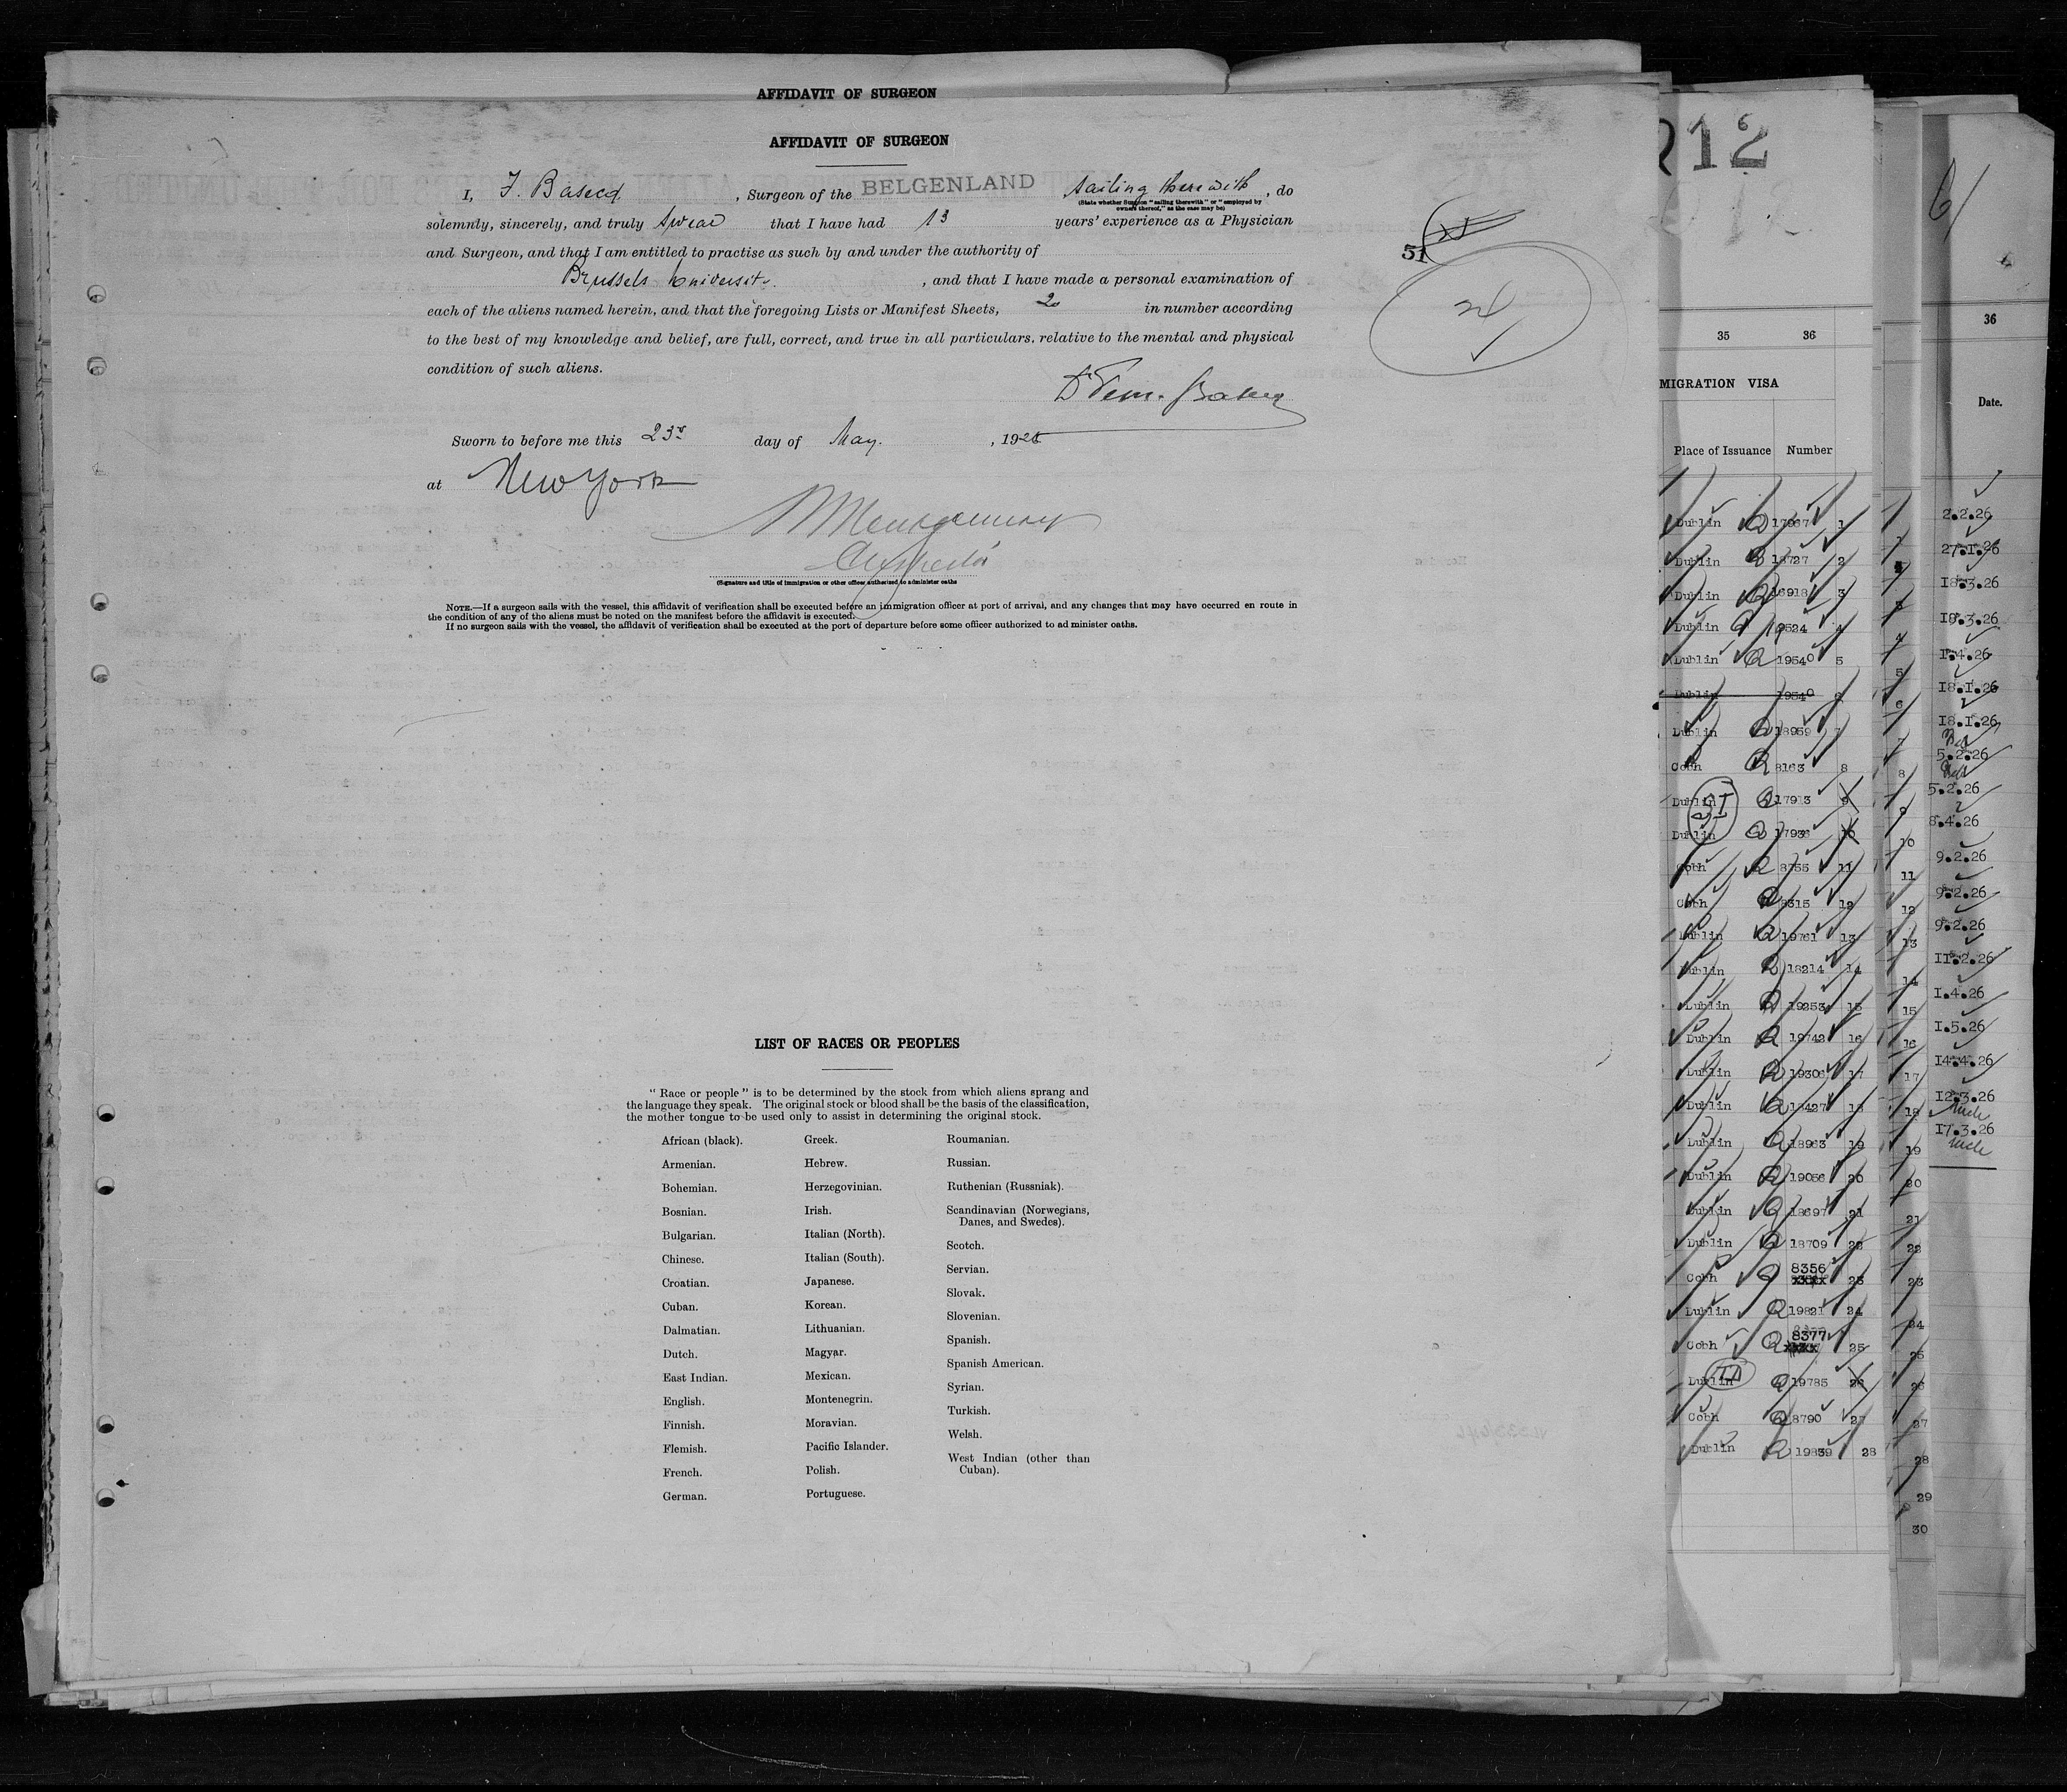 AFFIDAVIT OF SURGEON
AFFIDAVIT OF SURGEON
I, , Surgeon of the BELGENLAND sailing therewith , do
(State whether Surgeon "sailing therewith" or "employed by
owners thereof," as the case may be)
solemnly, sincerely, and truly swear that I have had 13 years' experience as a Physician
and Surgeon, and that I am entitled to practise as such by and under the authority of
Brussels University , and that I have made a personal examination of
each of the aliens named herein, and that the foregoing Lists or Manifest Sheets, 20 in number according
to the best of my knowledge and belief, are full, correct, and true in all particulars, relative to the mental and physical
condition of such aliens.
Sworn to before me this 23rd day of May. , 1926
at New York
(Signature and title of immigration or other officer authorized to administer oaths
NOTE.—If a surgeon sails with the vessel, this affidavit of verification shall be executed before an immigration officer at port of arrival, and any changes that may have occurred en route in
the condition of any of the aliens must be noted on the manifest before the affidavit is executed.
If no surgeon sails with the vessel, the affidavit of verification shall be executed at the port of departure before some officer authorized to ad minister oaths.
51
LIST OF RACES OR PEOPLES
"Race or people" is to be determined by the stock from which aliens sprang and
the language they speak. The original stock or blood shall be the basis of the classification,
the mother tongue to be used only to assist in determining the original stock.
African (black).
Armenian.
Bohemian.
Bosnian.
Bulgarian.
Chinese.
Croatian.
Cuban.
Dalmatian.
Dutch.
East Indian.
English.
Finnish.
Flemish.
French.
German.
Greek.
Hebrew.
Herzegovinian.
Irish.
Italian (North).
Italian (South).
Japanese.
Korean.
Lithuanian.
Magyar.
Mexican.
Montenegrin.
Moravian.
Pacific Islander.
Polish.
Portuguese.
Roumanian.
Russian.
Ruthenian (Russniak).
Scandinavian (Norwegians,
Danes, and Swedes).
Scotch.
Servian.
Slovak.
Slovenian.
Spanish.
Spanish American.
Syrian.
Turkish.
Welsh.
West Indian (other than
Cuban).
212
35 36
MIGRATION VISA
Place of Issuance Number
Dublin Q 17967 1
Dublin Q 18727 2
Dublin Q 16918 3
Dublin Q 19524 4
Dublin Q 19540 5
Dublin 19540 6
Dublin Q 18959 7
Cobh Q 8163 8
Dublin Q 17913 9
Dublin Q 17936 10
Cobh Q 11
Cobh Q 8315 12
Dublin Q 19761 13
Dublin Q 18214 14
Dublin Q 19253 15
Dublin Q 19742 16
Dublin Q 19306 17
Dublin Q 18427 18
Dublin Q 18963 19
Dublin Q 19056 20
Dublin Q 18697 21
Dublin Q 18709 22
Cobh Q 8356 23
Dublin Q 19821 24
Cobh Q 8377 25
Dublin Q 19785 26
Cobh Q 8790 27
Dublin Q 19839 28
1
2
3
4
5
6
7
8
9
10
11
12
13
14
15
16
17
18
19
20
21
22
23
24
25
26
27
28
29
30
36
Date.
2.2.26
27.1.26
18.3.26
19.3.26
1.4.26
18.1.26
18.1.26
5.2.26
5.2.26
8.4.26
9.2.26
9.2.26
9.2.26
11.2.26
1.4.26
1.5.26
14.4.26
12.3.26
17.3.26